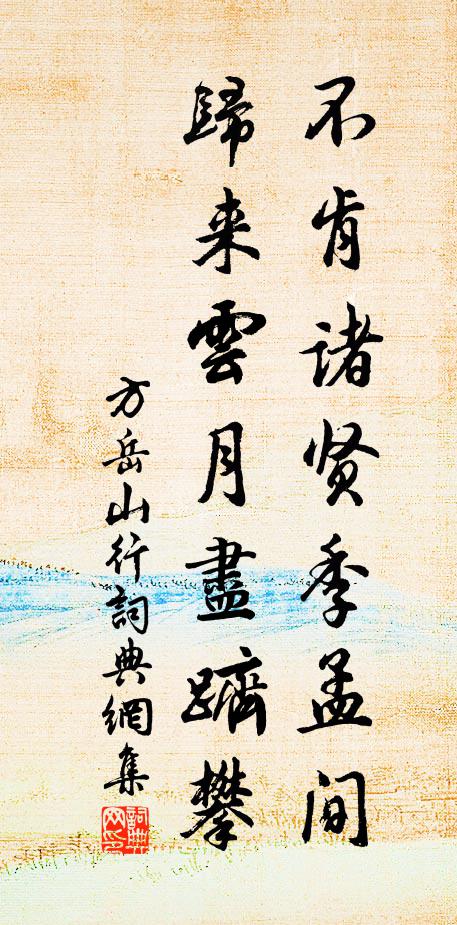 不肯诸贤季孟间
歸来雲月盡躋攀
方岳山行詞典網集